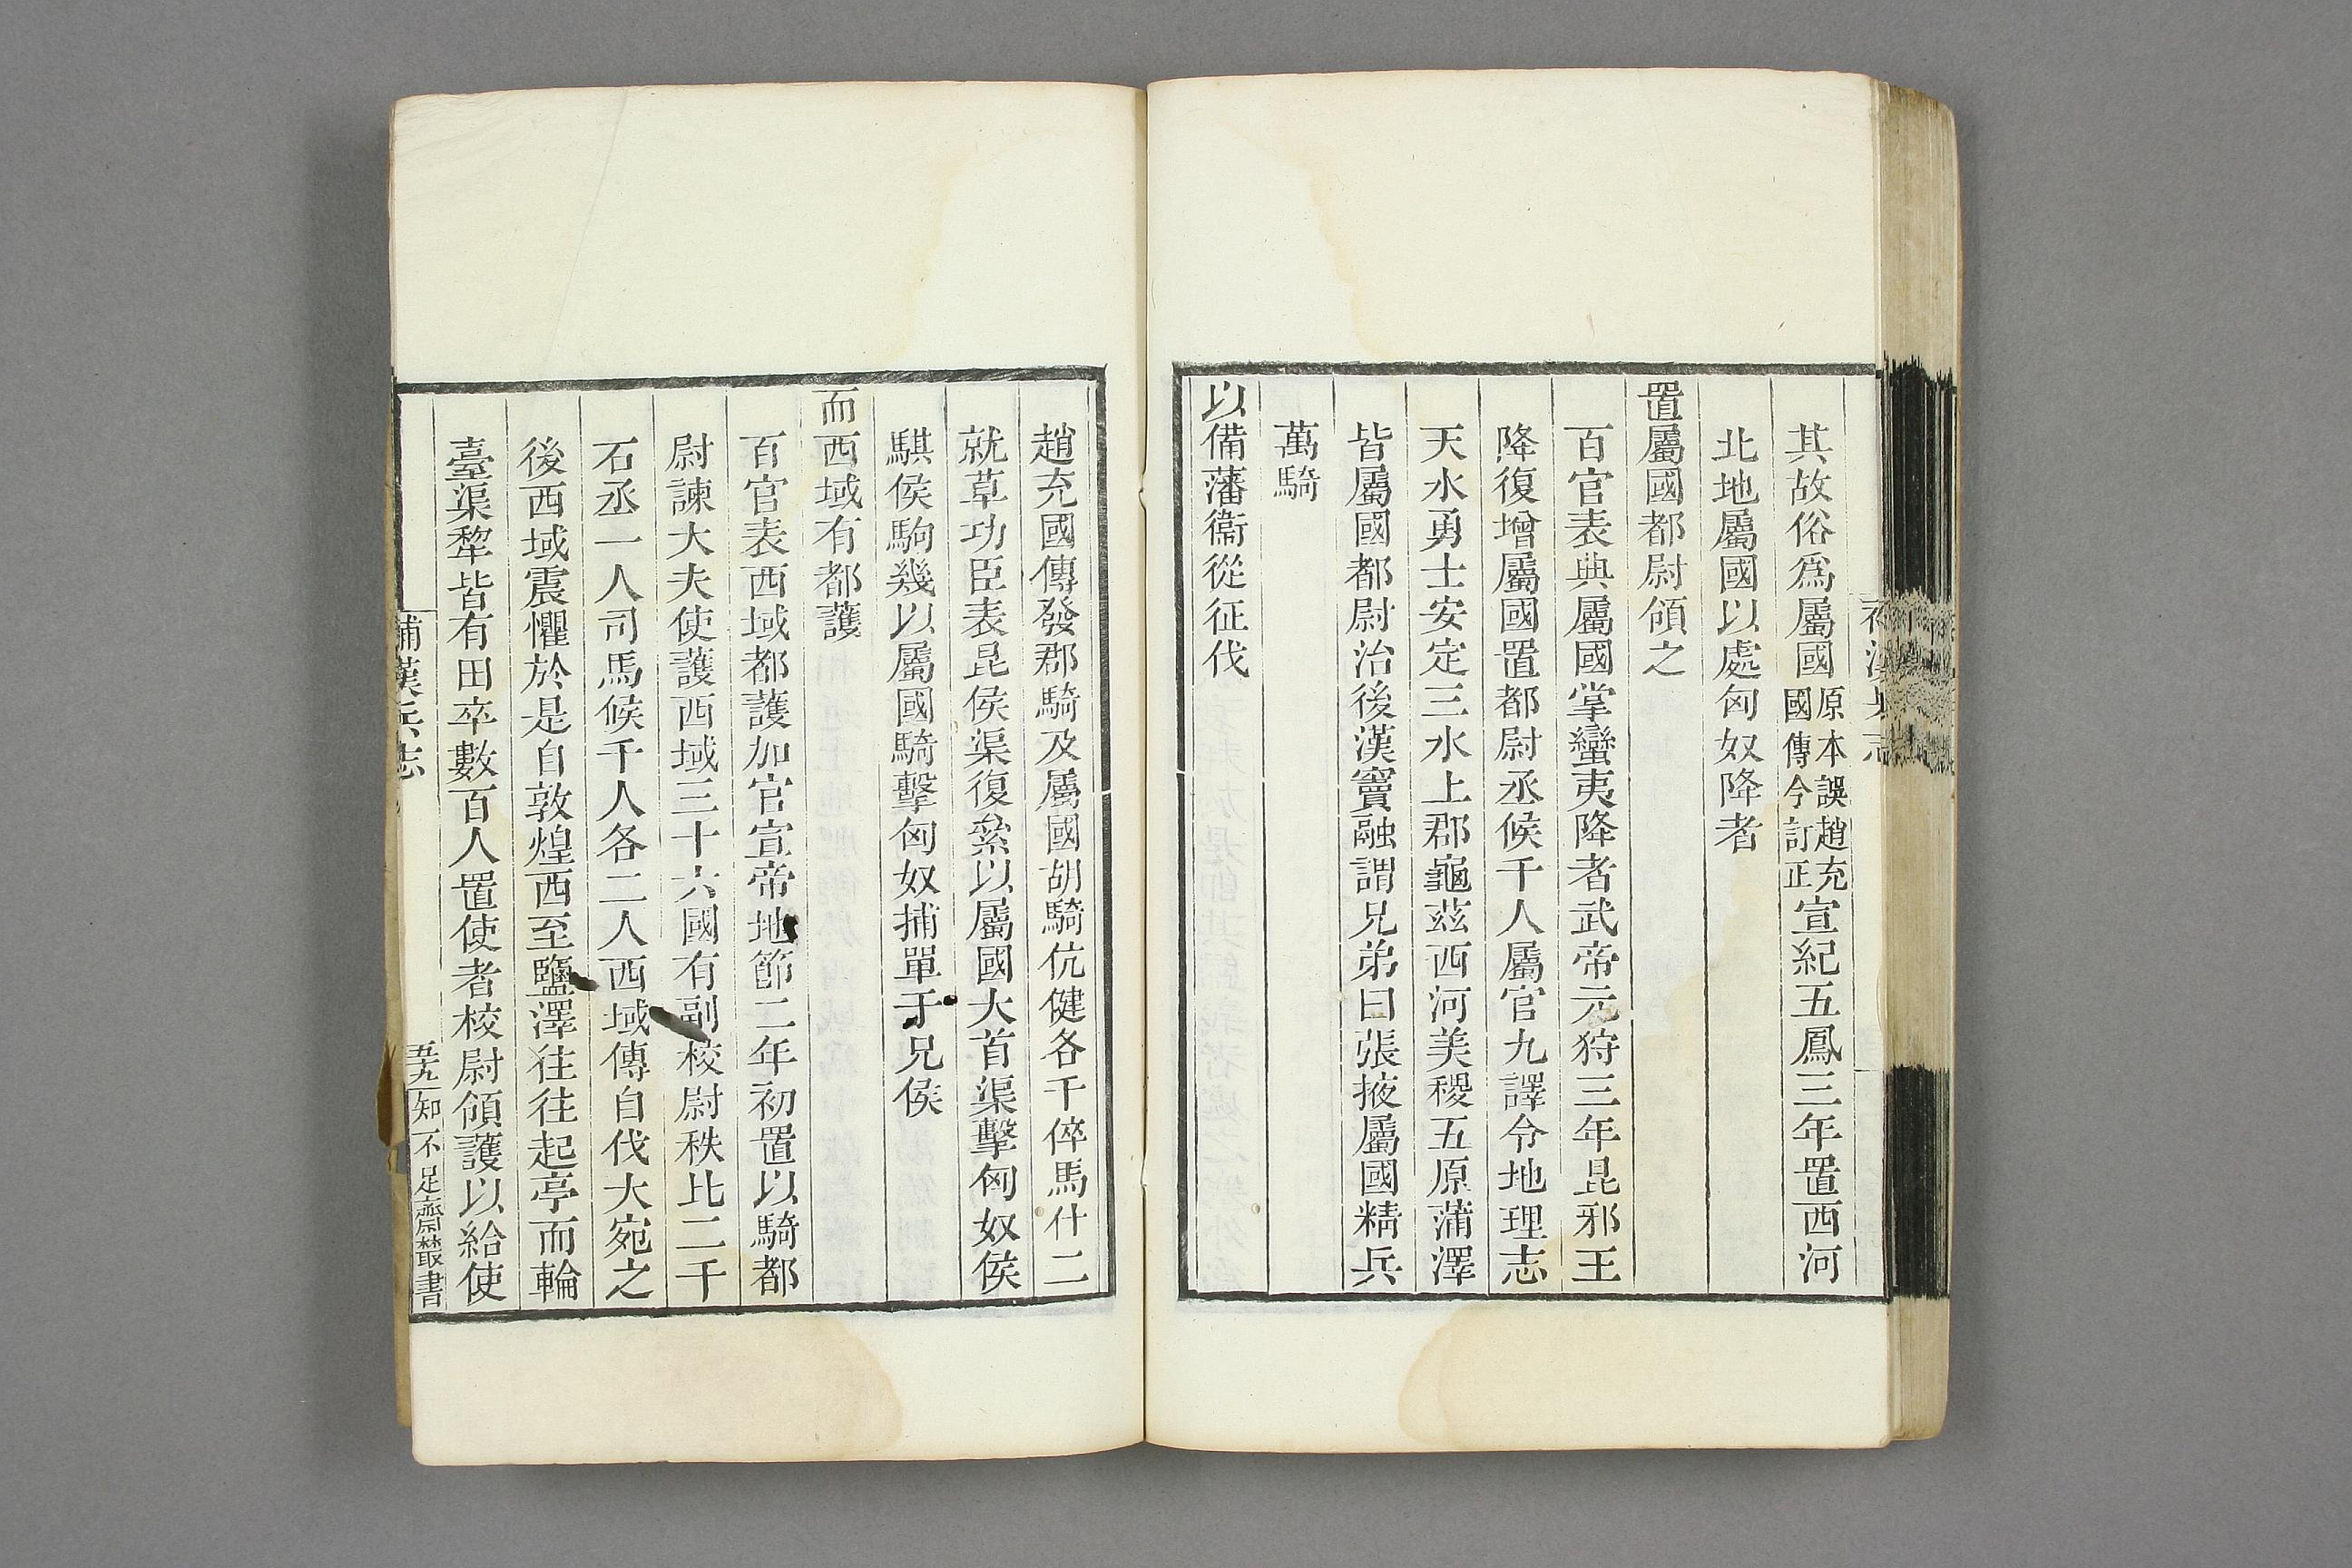 其故俗爲屬國原本誤趙充國傳今訂正宣紀五鳳三年置西河
北地屬國以處匈奴降者
置屬國都尉領之
百官表典屬國掌蠻夷降者武帝元狩三年昆邪王
降復增屬國置都尉丞候千人屬官九譯令地理志
天水勇士安定三水上郡龜茲西河美稷五原蒲澤
皆屬國都尉治後漢竇融謂兄弟曰張掖屬國精兵
萬騎
以備藩衞從征伐
趙充國傳發郡騎及屬國胡騎伉健各千倅馬什二
就草功臣表昆侯渠復絫以屬國大首渠擊匈奴侯
騏侯駒幾以屬國騎擊匈奴捕單于兄侯
而西域有都護
百官表西域都護加官宣帝地節二年初置以騎都
尉諫大夫使護西域三十六國有副校尉秩比二千
石丞一人司馬候千人各二人西域傳自伐大宛之
後西域震懼於是自敦煌西至鹽澤往往起亭而輪
臺渠犂皆有田卒數百人置使者校尉領護以給使
補漢兵志
五九
知不足齋叢書